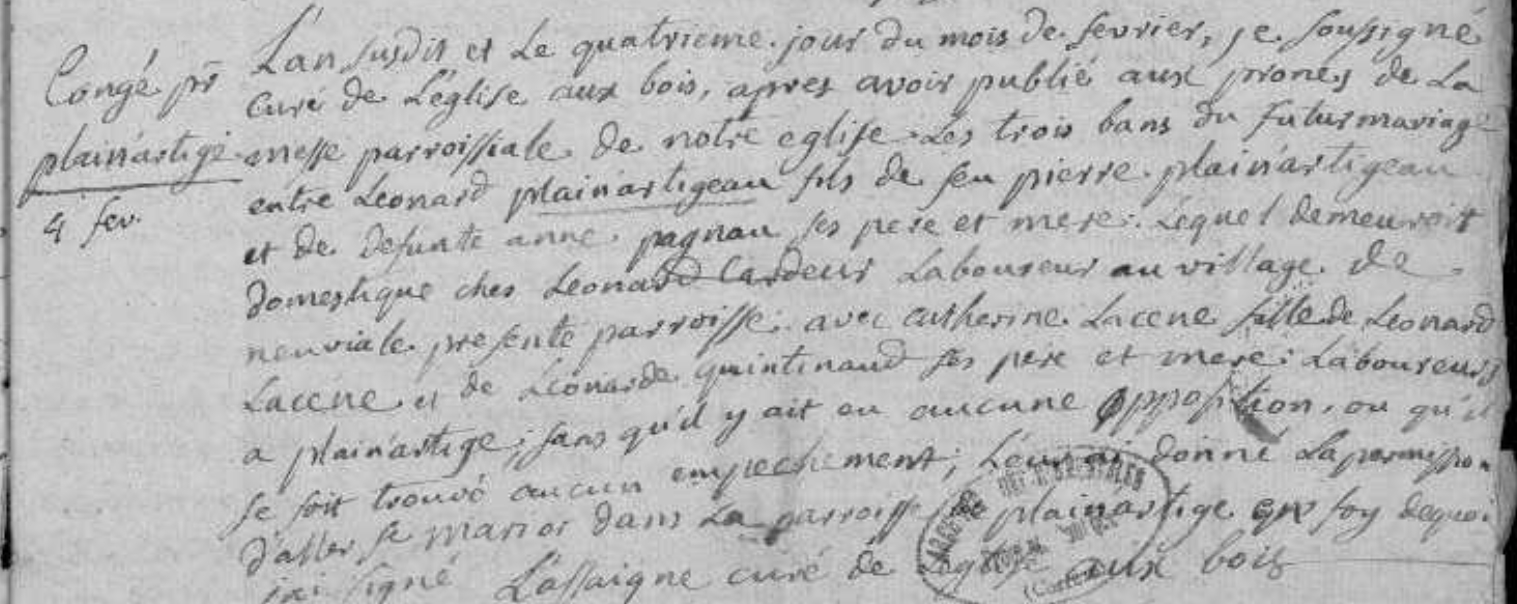 Congé pr
plainartige
4 fev.
L'an susdit et Le quatrieme jour du mois de fevrier, je soussigné
curé de L'eglise aux bois, apres avoir publié aux prones de La
messe parroissiale de notre eglise Les trois bans du futur mariage
entre Leonard plainartigeau fils de feu pierre plainartigeau
et de defunte anne pagnau ses pere et mere: Lequel demeuroit
domestique ches Leonard Cardeur Laboureur au village de
neuviale presente parroisse: avec catherine Lacene fille de Leonard
Lacene et de Leonarde quintinaud ses pere et mere: Laboureurs
a plainartige; sans qu'il y ait eu aucune opposition, ou qu'il
se soit trouvé aucun empechement; Leur ai donné La permission
d'aller se marier dans La parroisse de plainartige en foy de quoi
j'ai signé Lassaigne curé de L'eglise aux bois